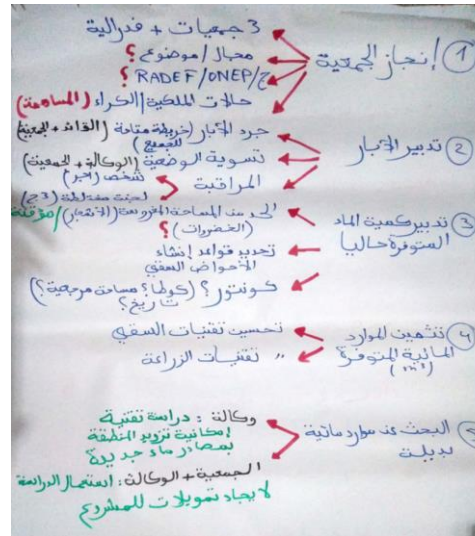 ① إنجاز الجمعية
3 جمعيات + فدرالية
مجال / موضوع؟
ج/RADEF/ONEP؟
حالات الملكية/الكراء (المساهمة)
② تدبير الآبار
جرد الآبار (خريطة متاحة للجميع) (القائد + الجمعية)
تسوية الوضعية (الوكالة + الجمعية)
المراقبة
شخص (أجير)
لجنة مختلطة (3 ج)
③ تدبير كمية الماء
المتوفرة حاليا
الحد من المساحة المزروعة (الأشجار)/مؤقتة
(الخضروات)؟
تحديد قواعد إنشاء
الأحواض السقي
كونتور؟ (كوطا؟ مساحة مرجعية؟
تاريخ؟)
④ تثمين الموارد
المائية المتوفرة
(m³)
تحسين تقنيات السقي
〃 تقنيات الزراعة
البحث عن موارد مائية
بديلة
وكالة : دراسة تقنية
إمكانية تزويد المنطقة
بمصادر ماء جديدة
الجمعية + الوكالة : استعمال الدراسة
لايجاد تمويلات للمشروع